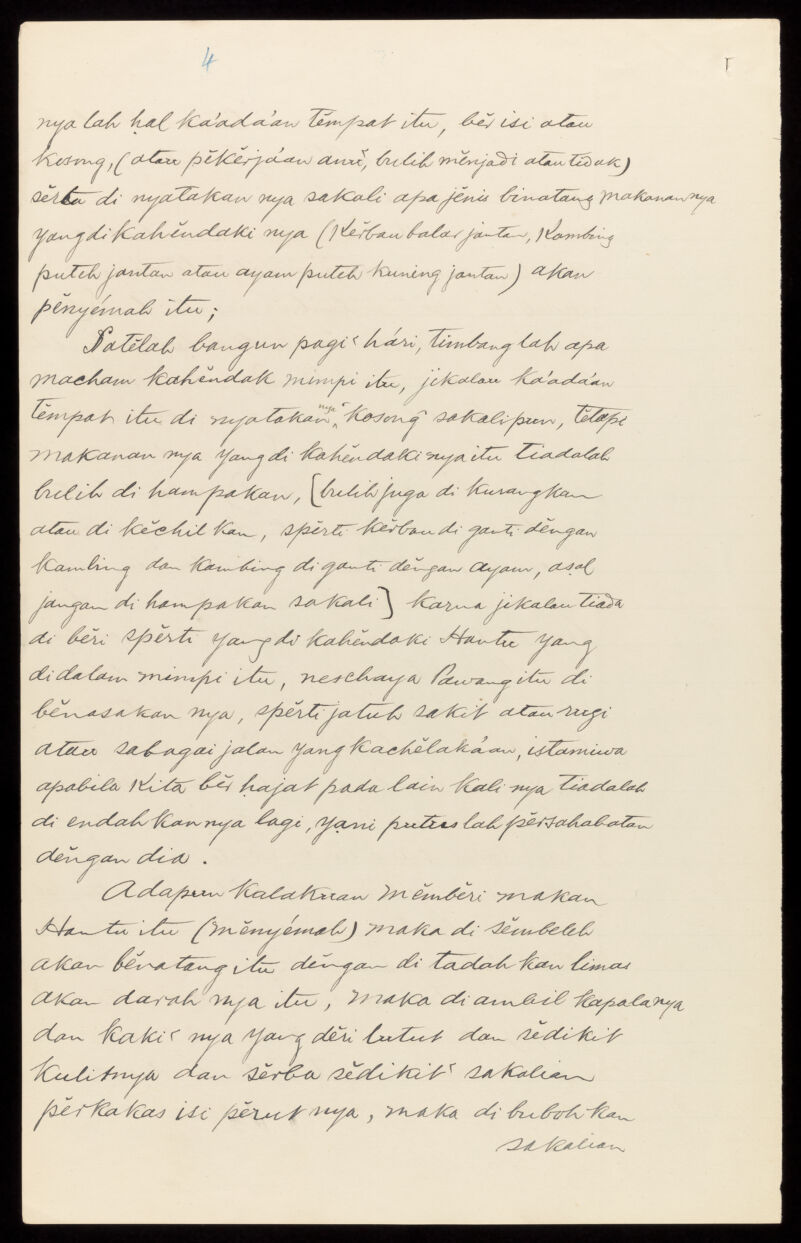 4
nya lah ḥal ka'ada'an tĕmpat itu, bĕr isi atau
kosong, (atau pĕkĕrja'an anu, bulih mĕnjadi atau tidak)
sĕrta di nyatakan nya sakali apa jĕnis binatang makanan nya
yang di kahĕndaki nya (Kĕrbau balar jantan, Kambing
puteh jantan atau ayam puteh kuning jantan) akan
pĕnyémah itu;
Satĕlah bangun pagi ʿ hári, timbang lah apa
macham kahĕndak mimpi itu, jikalau ka'ada'an
tĕmpat itu di nyatakan nya "kosong" sakali pun, tĕtapi
makanan nya yang di kahĕndaki nya itu tiadalah
bulih di hampakan, [bulih juga di kurangkan
atau di kĕchil kan, spĕrti kĕrbau di ganti dĕngan
kambing dan kambing di ganti dĕngan ayam, aṣal
jangan di hampakan sakali] karna jikalau tiada
di bĕri spĕrti yang di kahĕndaki Hantu yang
didalam mimpi itu, neschaya Pawang itu di
bĕnasakan nya, spĕrti jatuh sakit atau rugi
atau sabagai jalan yang kachĕlaka'an, istamiwa
apabila Kita bĕr ḥajat pada lain kali nya tiadalah
di endah kan nya lagi, yạni putus lah pĕrsahabatan
dĕngan dia.
Adapun Kalakuan mĕmbĕri makan
Hantu itu (mĕnyémah) maka di sĕmbeleh
akan bĕnatang itu dĕngan di tadah kan limas
akan darah nya itu, maka di ambil kapala nya
dan kaki ʿ nya yang dĕri lutut dan sĕdikit
kulitnya dan sĕrba sĕdikit ʿ sakalian
pĕrkakas isi pĕrut nya, maka di buboh kan
sakalian